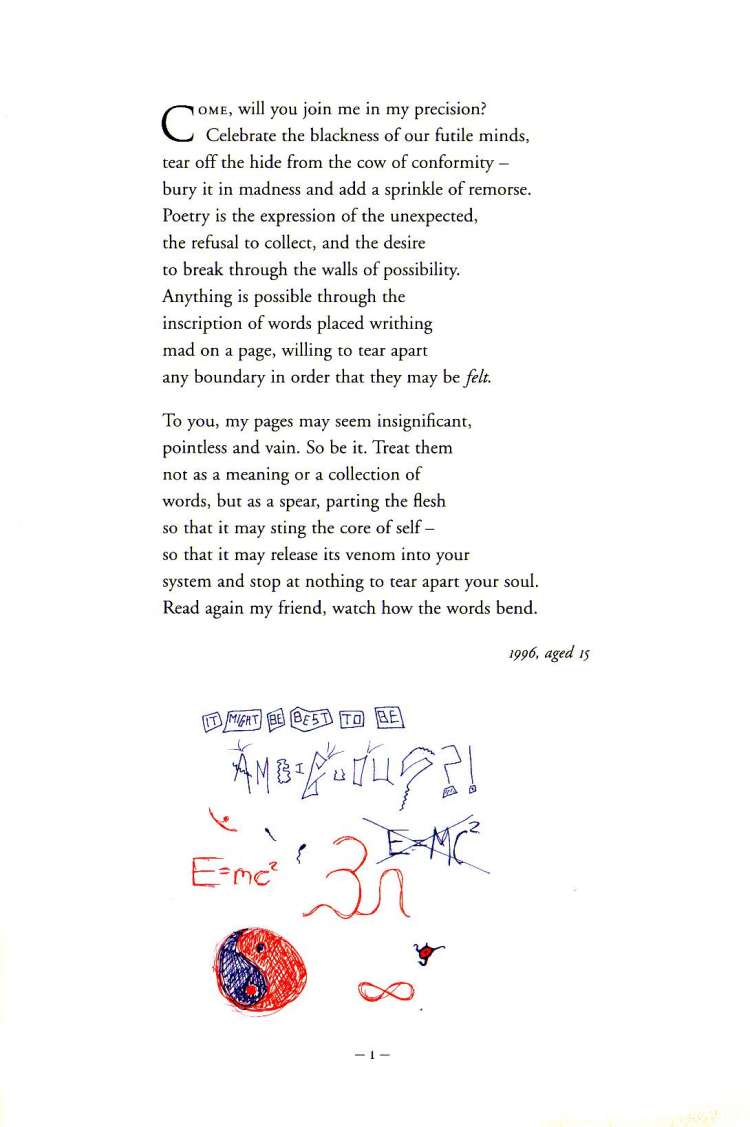 COME, will you join me in my precision?
Celebrate the blackness of our futile minds,
tear off the hide from the cow of conformity –
bury it in madness and add a sprinkle of remorse.
Poetry is the expression of the unexpected,
the refusal to collect, and the desire
to break through the walls of possibility.
Anything is possible through the
inscription of words placed writhing
mad on a page, willing to tear apart
any boundary in order that they may be felt.
To you, my pages may seem insignificant,
pointless and vain. So be it. Treat them
not as a meaning or a collection of
words, but as a spear, parting the flesh
so that it may sting the core of self –
so that it may release its venom into your
system and stop at nothing to tear apart your soul.
Read again my friend, watch how the words bend.
1996, aged 15
IT MIGHT BE BEST TO BE
AMBIGUOUS?!
E=MC²
E=mc²
– 1 –